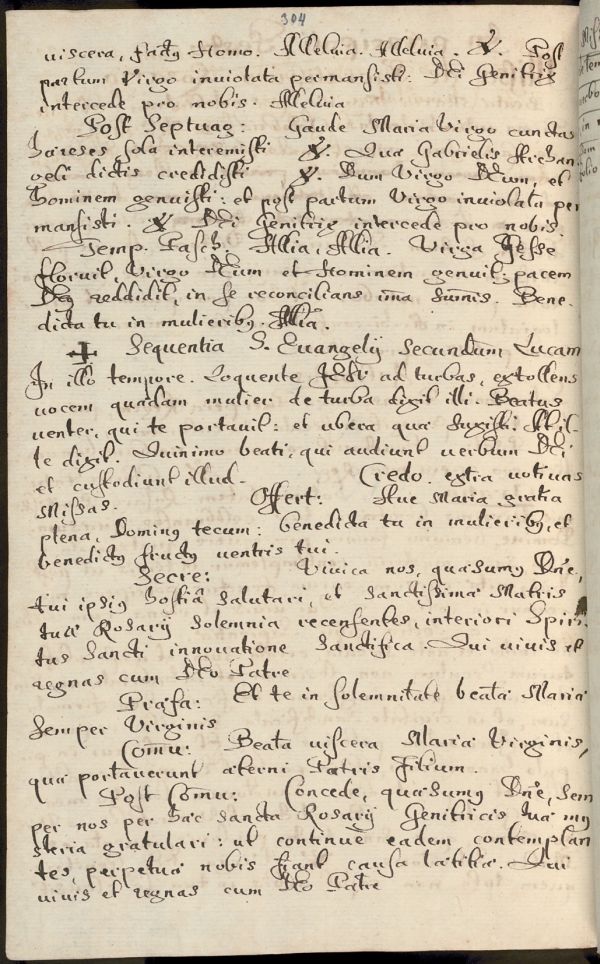 304
uiscera, factq Homo. Alleluia. Alleluia. ℣. Post
partum Virgo inuiolata permansisti: Dei Genitrix
intercede pro nobis. Alleluia
Post Septuag: Gaude Maria Virgo cunctas
hæreses sola interemisti ℣. Quæ Gabrielis Archan
geli dictis credidisti ℣. Dum Virgo Deum, et
hominem genuisti: et post partum Virgo inuiolata per
mansisti. ℣ Dei Genitrix intercede pro nobis.
Temp. Pasch. Allia, Allia. Virga Jesse
floruit, Virgo Deum et Hominem genuit: pacem
Deq reddidit, in se reconcilians ima sumis. Bene
dicta tu in mulieribq. Allia.
✠ Sequentia S. Euangelij secundum Lucam
In illo tempore. Loquente Jesu ad turbas, extollens
uocem quædam mulier de turba dixit illi. Beatus
uenter, qui te portauit: et ubera quæ suxisti. At il-
le dixit. Quinimo beati, qui audiunt uerbum Dei
et custodiunt illud. Credo. extra uotiuas
Missas. Offert: Aue Maria gratia
plena, Dominq tecum: benedicta tu in mulieribq, et
benedictq fructq uentris tui.
Secre: Viuica nos, quæsumq Dne,
tui ipsiq hostiâ salutari, et sanctissimæ Matris
tuæ Rosarij solemnia recensentes, interiori Spiri
tus Sancti innouatione sanctifica. Qui uiuis et
regnas cum Deo Patre
Præfa: Et te in solemnitate beatæ Mariæ
semper Virginis
Comu: Beata uiscera Mariæ Virginis,
quæ portauerunt æterni Patris Filium.
Post Comu: Concede, quæsumq Dne, sem
per nos per hæc sancta Rosarij Genitricis tuæ my
steria gratulari: ut continuè eadem contemplan
tes, perpetuæ nobis fiant causa lætitiæ. Qui
uiuis et regnas cum Deo Patre